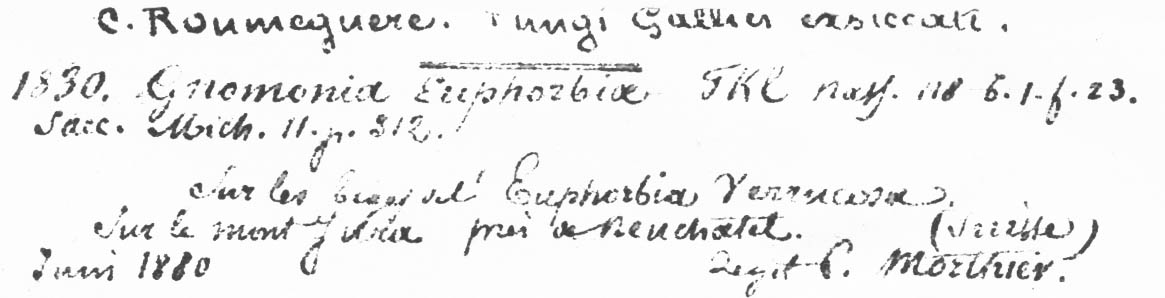 C. Roumeguere. Fungi Gallici exsiccati.
1830. Gnomonia Euphorbiæ FKl Nass. 118 t. 1. f. 23.
Sacc. Mich. 11. p. 312.
Sur les tiges de l'Euphorbia Verrucosa.
Sur le mont Jura près de Neuchatel. (Suisse)
Juin 1880 Legit P. Morthier.